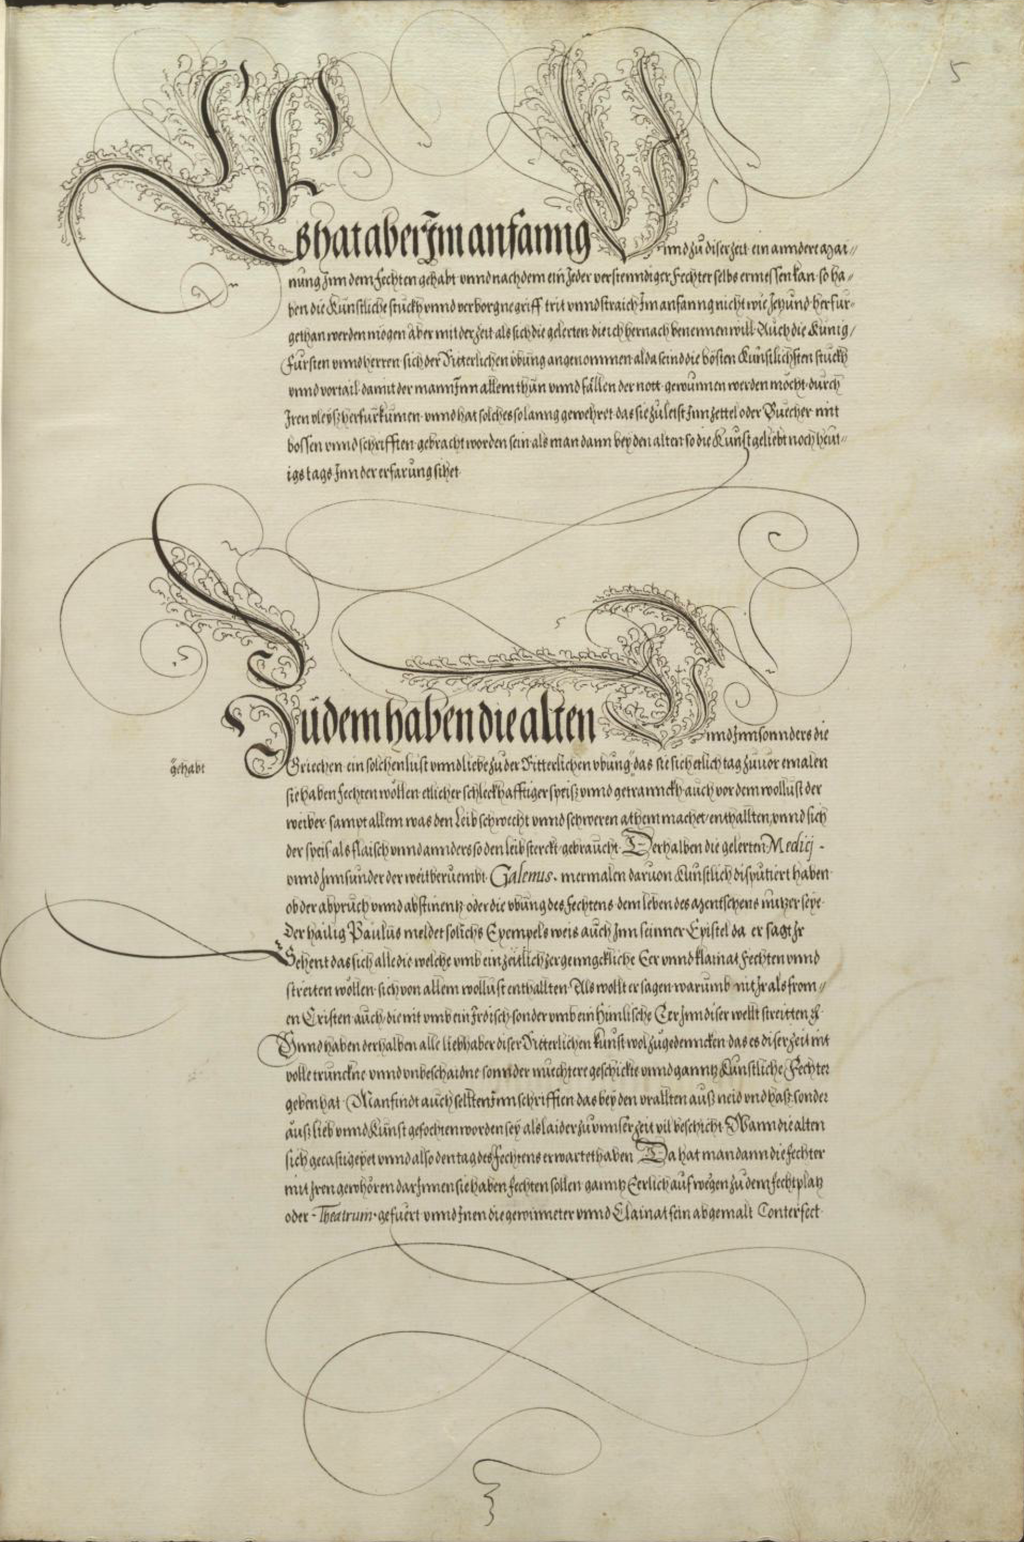 5
Es hat aber Im anfanng Vnnd zu diser zeit ein anndere mai-
nung Inn dem Fechten gehabt vnnd nachdem ein Jeder verstenndiger Fechter selbs ermessen kan so ha-
ben die Künstliche stückh vnnd verborgne griff trit vnnd straich Im anfanng nicht wie Jezund herfur-
gethan werden mögen Aber mit der zeit als sich die gelerten die ich hernach benennen will Auch die Künig/
Fürsten vnnd herren sich der Ritterlichen übung angenommen alda seind die bösten Künstlichsten stückh
vnnd vortail damit der mann Inn allem thün vnnd fällen der nott gewunnen werden möcht durch
Iren vleyß herfür kumen vnnd hat solches so lanng gewehret das sie zü letst Inn zettel oder Buecher mit
bossen vnnd schrifften gebracht worden sein als man dann bey den alten so die Kunst geliebt noch heut-
igs tags Inn der erfarung sihet
Zudem haben die alten Vnnd Innsonnders die
Griechen ein solchen lust vnnd liebe zu der Ritterlichen vbung das sie sich etlich tag zuuor emalen
gehabt
sie haben fechten wöllen etlicher schleckhafftiger speiß vnnd getranncks auch vor dem wollust der
weiber sampt allem was den Leib schwecht vnnd schweren athem machet enthallten vnnd sich
der speis als flaisch vnnd annders so den leib sterckt gebraucht Derhalben die gelerten Medicj -
vnnd Innsunder der weitberuembt Galenus mermalen daruon Künstlich disputiert haben
ob der abpruch vnnd abstinentz oder die vbung des fechtens dem leben des menschens nutzer seye
Der hailig Paulus meldet solichs Exempels weis auch Inn seinner Epistel da er sagt Ir
Sehent das sich alle die welche vmb ein zeitlich zergenngckliche Eer vnnd klainat Fechten vnnd
streiten wöllen sich von allem wollust enthallten Als wollt er sagen warumb nit Ir als from-
en Cristen auch die nit vmb ein Irdisch sonder vmb ein himlische Eer Inn diser wellt streitten ꝛc
Vnnd haben derhalben alle liebhaber diser Ritterlichen kunst wol zugedenncken das es diser zeit nit
volle trunckne vnnd vnbeschaidne sonnder nuechtere geschickte vnnd ganntz Künstliche Fechter
geben hat Man findt auch sellten Inn schrifften das bey den vrallten auß neid vnd haß sonder
auß lieb vnnd Kunst gefochten worden sey als laider zu vnnser zeit vil beschicht Wann die alten
sich gecastigeyet vnnd also den tag des Fechtens erwartet haben Da hat man dann die Fechter
mit Iren gewhören darInnen sie haben fechten sollen ganntz Eerlich auf wägen zu dem fechtplatz
oder Theatrum gefuert vnnd Inen die gewinneter vnnd Clainat fein abgemalt Conterfect